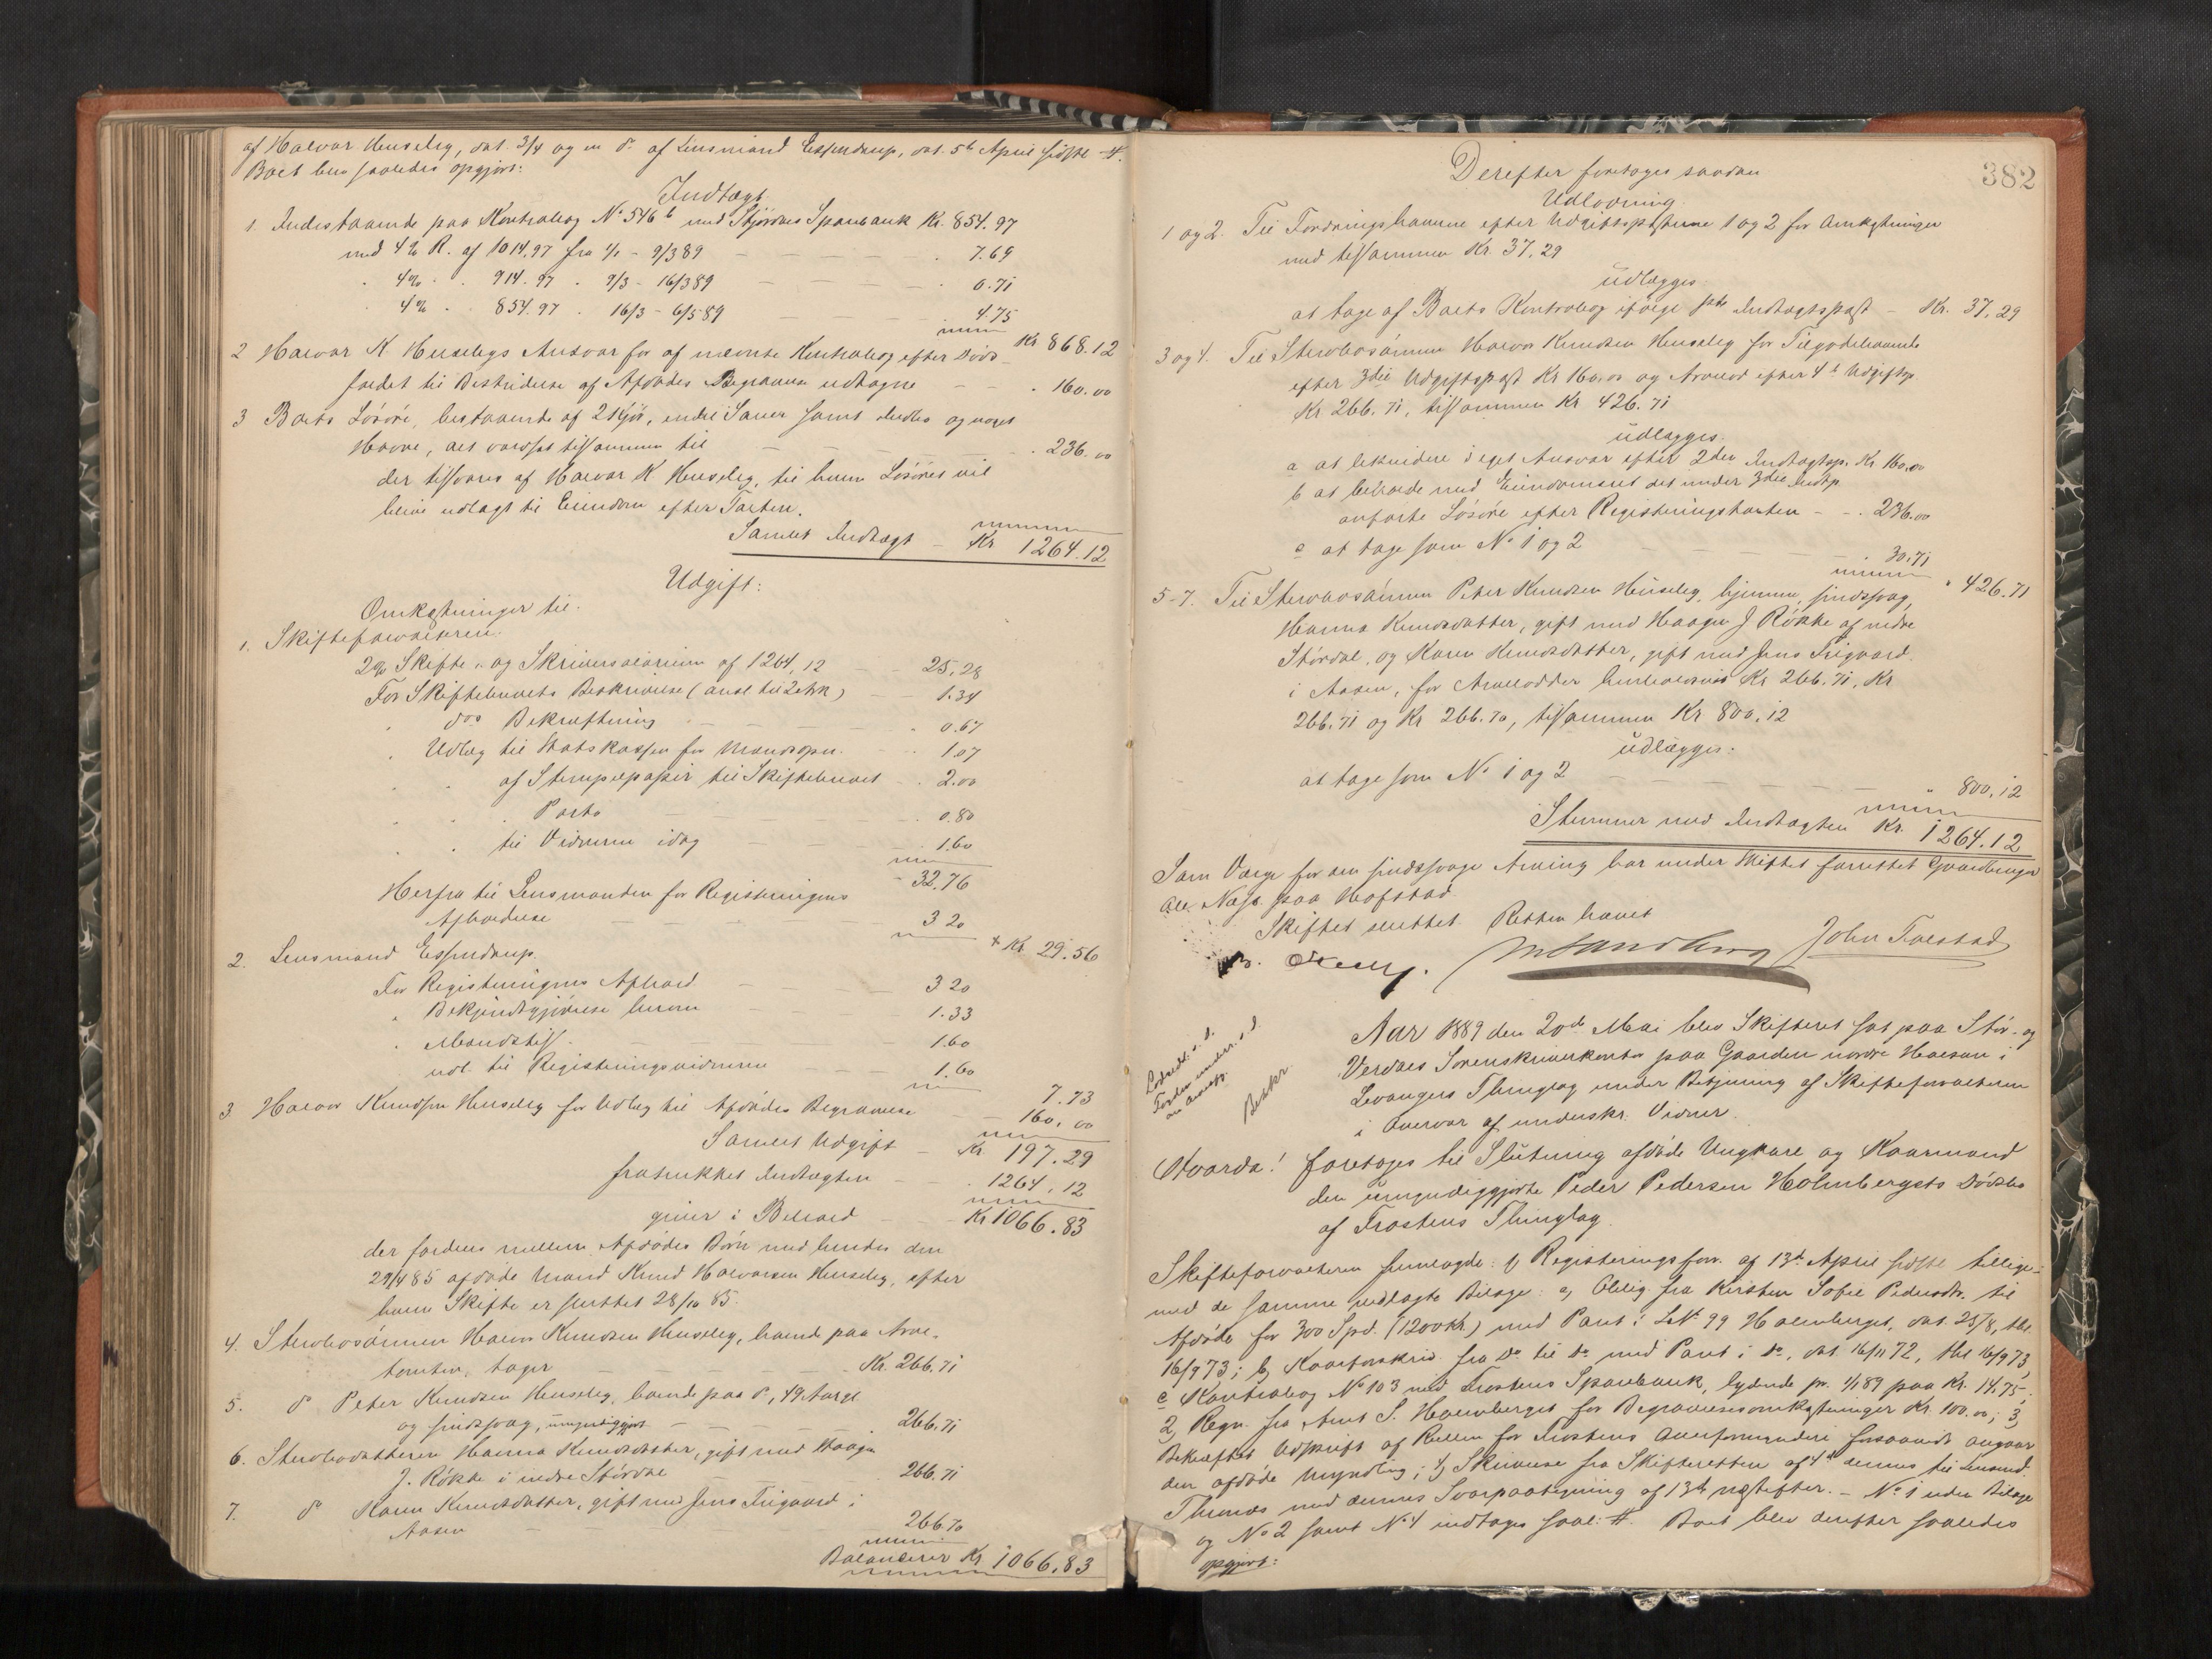 af Halvor Husebey, dat. 3/4 og en do af Lensmand Essendrup, dat. 5te April sidstl. #.
Boet blev saaledes opgjort:
Indtægt
1. Indestaaende paa Kontrabog No 546 b med Stjørdals Sparebank Kr. 854.97
med 4 % R. af 1014.97 fra 1/1 - 9/3 89 - - - 7.69
" 4% " " 914.97 " 9/3 - 16/3 89 - - - 0.71
" 4% " " 854.97 " 16/3 - 6/5 89 - - - 4.75
Kr 868.12
2 Halvor K. Husebys Ansvar for af nævnte Kontrabog efter Døds-
faldet til Bestridelse af Afdødes Begravelse udtagne - - . 160.00
3 Boets Løsøre, bestaaende af 2 Kjør, endel Sauer samt andet og noget
Havre, alt værdsat tilsammen til - - - . 236.00
der tilsvares af Halvor K Husebey, til hvem Løsøret vil
blive udlagt til Eiendom efter Taxten.
Samlet Indtægt - Kr 1264.12
Udgift:
Omkostninger til:
1. Skifteforvalteren:
2% Skifte- og Skriversalarium af 1264,12 - - 25,28
For Skiftebrevets Beskrivelse (ansl. til 2 ark) - 1.34
" dos Bekræftning - - - 0.67
" Udlæg til Statskassen for Mandsopn. - . 1.07
" " af Stempelpapir til Skiftebrevet - . 2.00
" " Porto - - - . 0.80
" " til Vidnerne idag - - - . 1.60
32.76
Herfra til Lensmanden for Registreringens
Afholdelse - - - 3 20
+ Kr 29.56
2. Lensmand Essendrup.
For Registreringens Afhold - - 3 20
" Bekjendtgjørelse herom - - 1.33
" Mandstill. - - - 1.60
udl. til Registreringsvidnerne - - 1.60
7.73
3 Halvor Knudsen Husebey for Udlæg til Afdødes Begravelse - 160.00
Samlet Udgift - Kr 197.29
fratrukket Indtægten - - . 1264.12
giver i Behold - - Kr 1066.83
der fordeles mellem Afdødes Børn med hendes den
29/4 85 afdøde Mand Knud Halvorsen Husebey, efter
hvem Skifte er sluttet 28/10 85.
4. Stervbosønnen Halvor Knudsen Husebey, boende paa Arve-
tomten, tager - - - Kr. 266.71
5. do Peter Knudsen Husebey, boende paa do, 49 Aar gl.
og sindssvag, umyndiggjort - - - 266.71
6. Stervbodatteren Hanna Knudsdatter, gift med Haagen
J. Røkke i nedre Størdal - - - 266.71
7. do Karen Knudsdatter, gift med Jens Trigaard i
Aasen - - - 266.70
Balancerer Kr 1066.83
382
Derefter foretoges saadan
Udlodning.
1 og 2. Til Fordringshaverne efter Udgiftsposterne 1 og 2 for Omkostninger
med tilsammen Kr. 37,29
udlægges:
at tage af Boets Kontrabog ifølge 1ste Indtægtspost - Kr. 37,29
3 og 4. Til Stervbosønnen Halvor Knudsen Husebey for Tilgodehavende
efter 3die Udgiftspost Kr 160.00 og Arvelod efter 4de Udgiftsp.
Kr 266.71, tilsammen Kr 426.71
udlægges:
a at likvidere i eget Ansvar efter 2den Indtægtsp. Kr 160.00
b at beholde med Eiendomsret det under 3die Indtp.
anførte Løsøre efter Registreringstaxten - - . 236.00
c at tage som No 1 og 2 - - - . 30.71
" 426.71
5-7. Til Stervbosønnen Peter Knudsen Husebey, hjemme, sindssvag,
Hanna Knudsdatter, gift med Haagen J Røkke af nedre
Størdal, og Karen Knudsdatter, gift med Jens Trigaard
i Aasen, for Arvelodder henholdsvis Kr 266.71, Kr
266.71 og Kr 266.70, tilsammen Kr 800.12
udlægges:
at tage som No 1 og 2 - - - 800,12
Stemmer med Indtægten Kr. 1264.12
Som Værge for den sindssvage Arving har under Skiftet forrettet Gaardbruger
Ole Næss paa Hofstad
Skiftet sluttet. Retten hævet
M Sandberg John Folestad
Aar 1889 den 20de Mai blev Skifteret sat paa Stør- og
Verdals Sorenskriverkontor paa Gaarden nordre Halsan i
Levangers Thinglag under Betjening af Skifteforvalteren
i Overvær af underskr. Vidner.
Hvorda! foretoges til Slutning afdøde Ungkarl og Kaarmand
den umyndiggjorte Peder Pedersen Holmbergets Dødsbo
af Frostens Thinglag.
Skifteforvalteren fremlagde: 1) Registreringsforr. af 13de April sidstl. tillige-
med de samme vedlagte Bilage: a) Oblig. fra Kirsten Sofie Pedersdtr. til
Afdøde for 300 Spd. (1200 Kr.) med Pant i LNr 99 Holmberget, dat. 23/8, thl.
16/9 73; b) Kaarforskriv. fra do til do med Pant i do, dat. 16/11 72, thl 16/9 73,
c Kontrabog No 103 med Frostens Sparebank, lydende pr. 1/1 89 paa Kr. 14.75;
2) Regn. fra Arnt S. Holmberget for Begravelsesomkostninger Kr. 100.00; 3,
Bekræftet Udskrift af Rullen for Frostens Overformynderi forsaavidt angaar
den afdøde Myndling; 4) Skrivelse fra Skifteretten af 4de dennes til Lensmd.
Thinnes med dennes Svarpaategning af 13de næstefter. - No 1 uden Bilage
og No 2 samt No 4 indtages saal: #. Boet blev derefter saaledes
opgjort: